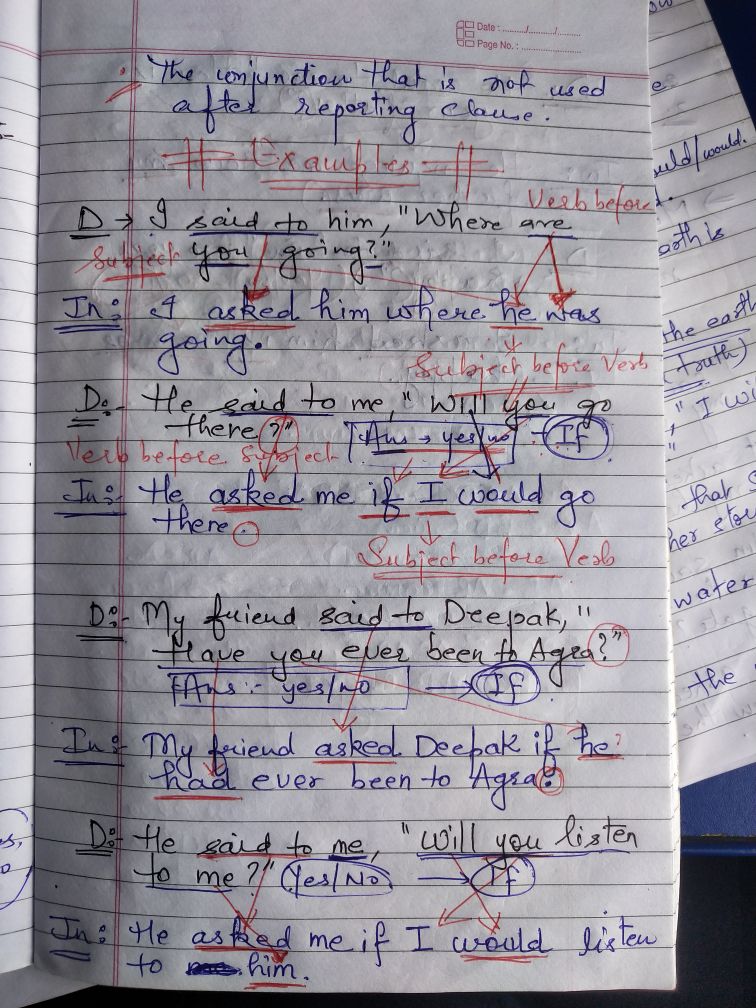 Date : ......../......../........
Page No. : ........................
The conjunction that is not used
after reporting clause.
# Examples #
Verb before
D → I said to him, "Where are
Subject you going?"
In:- I asked him where he was
going.
Subject before Verb
D:- He said to me, "Will you go
there?" Ans → yes/no - If
Verb before Subject
In:- He asked me if I would go
there.
Subject before Verb
D:- My friend said to Deepak, "
Have you ever been to Agra?"
Ans :- yes/no → If
In:- My friend asked Deepak if he
had ever been to Agra?
D:- He said to me, "Will you listen
to me?" Yes/No → If
In:- He asked me if I would listen
to him.
uld/would.
earth is
the earth
(truth)
" I wi
that S
her sto
water
the